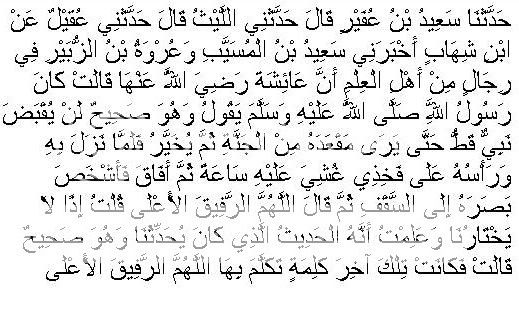 حَدَّثَنَا سَعِيدُ بْنُ عُفَيْرٍ قَالَ حَدَّثَنِي اللَّيْثُ قَالَ حَدَّثَنِي عُقَيْلٌ عَنْ
ابْنِ شِهَابٍ أَخْبَرَنِي سَعِيدُ بْنُ الْمُسَيَّبِ وَعُرْوَةُ بْنُ الزُّبَيْرِ فِي
رِجَالٍ مِنْ أَهْلِ الْعِلْمِ أَنَّ عَائِشَةَ رَضِيَ اللَّهُ عَنْهَا قَالَتْ كَانَ
رَسُولُ اللَّهِ صَلَّى اللَّهُ عَلَيْهِ وَسَلَّمَ يَقُولُ وَهُوَ صَحِيحٌ لَنْ يُقْبَضَ
نَبِيٌّ قَطُّ حَتَّى يَرَى مَقْعَدَهُ مِنْ الْجَنَّةِ ثُمَّ يُخَيَّرُ فَلَمَّا نَزَلَ بِهِ
وَرَأْسُهُ عَلَى فَخِذِي غُشِيَ عَلَيْهِ سَاعَةً ثُمَّ أَفَاقَ فَأَشْخَصَ
بَصَرَهُ إِلَى السَّقْفِ ثُمَّ قَالَ اللَّهُمَّ الرَّفِيقَ الْأَعْلَى قُلْتُ إِذًا لَا
يَخْتَارُنَا وَعَلِمْتُ أَنَّهُ الْحَدِيثُ الَّذِي كَانَ يُحَدِّثُنَا وَهُوَ صَحِيحٌ
قَالَتْ فَكَانَتْ تِلْكَ آخِرَ كَلِمَةٍ تَكَلَّمَ بِهَا اللَّهُمَّ الرَّفِيقَ الْأَعْلَى